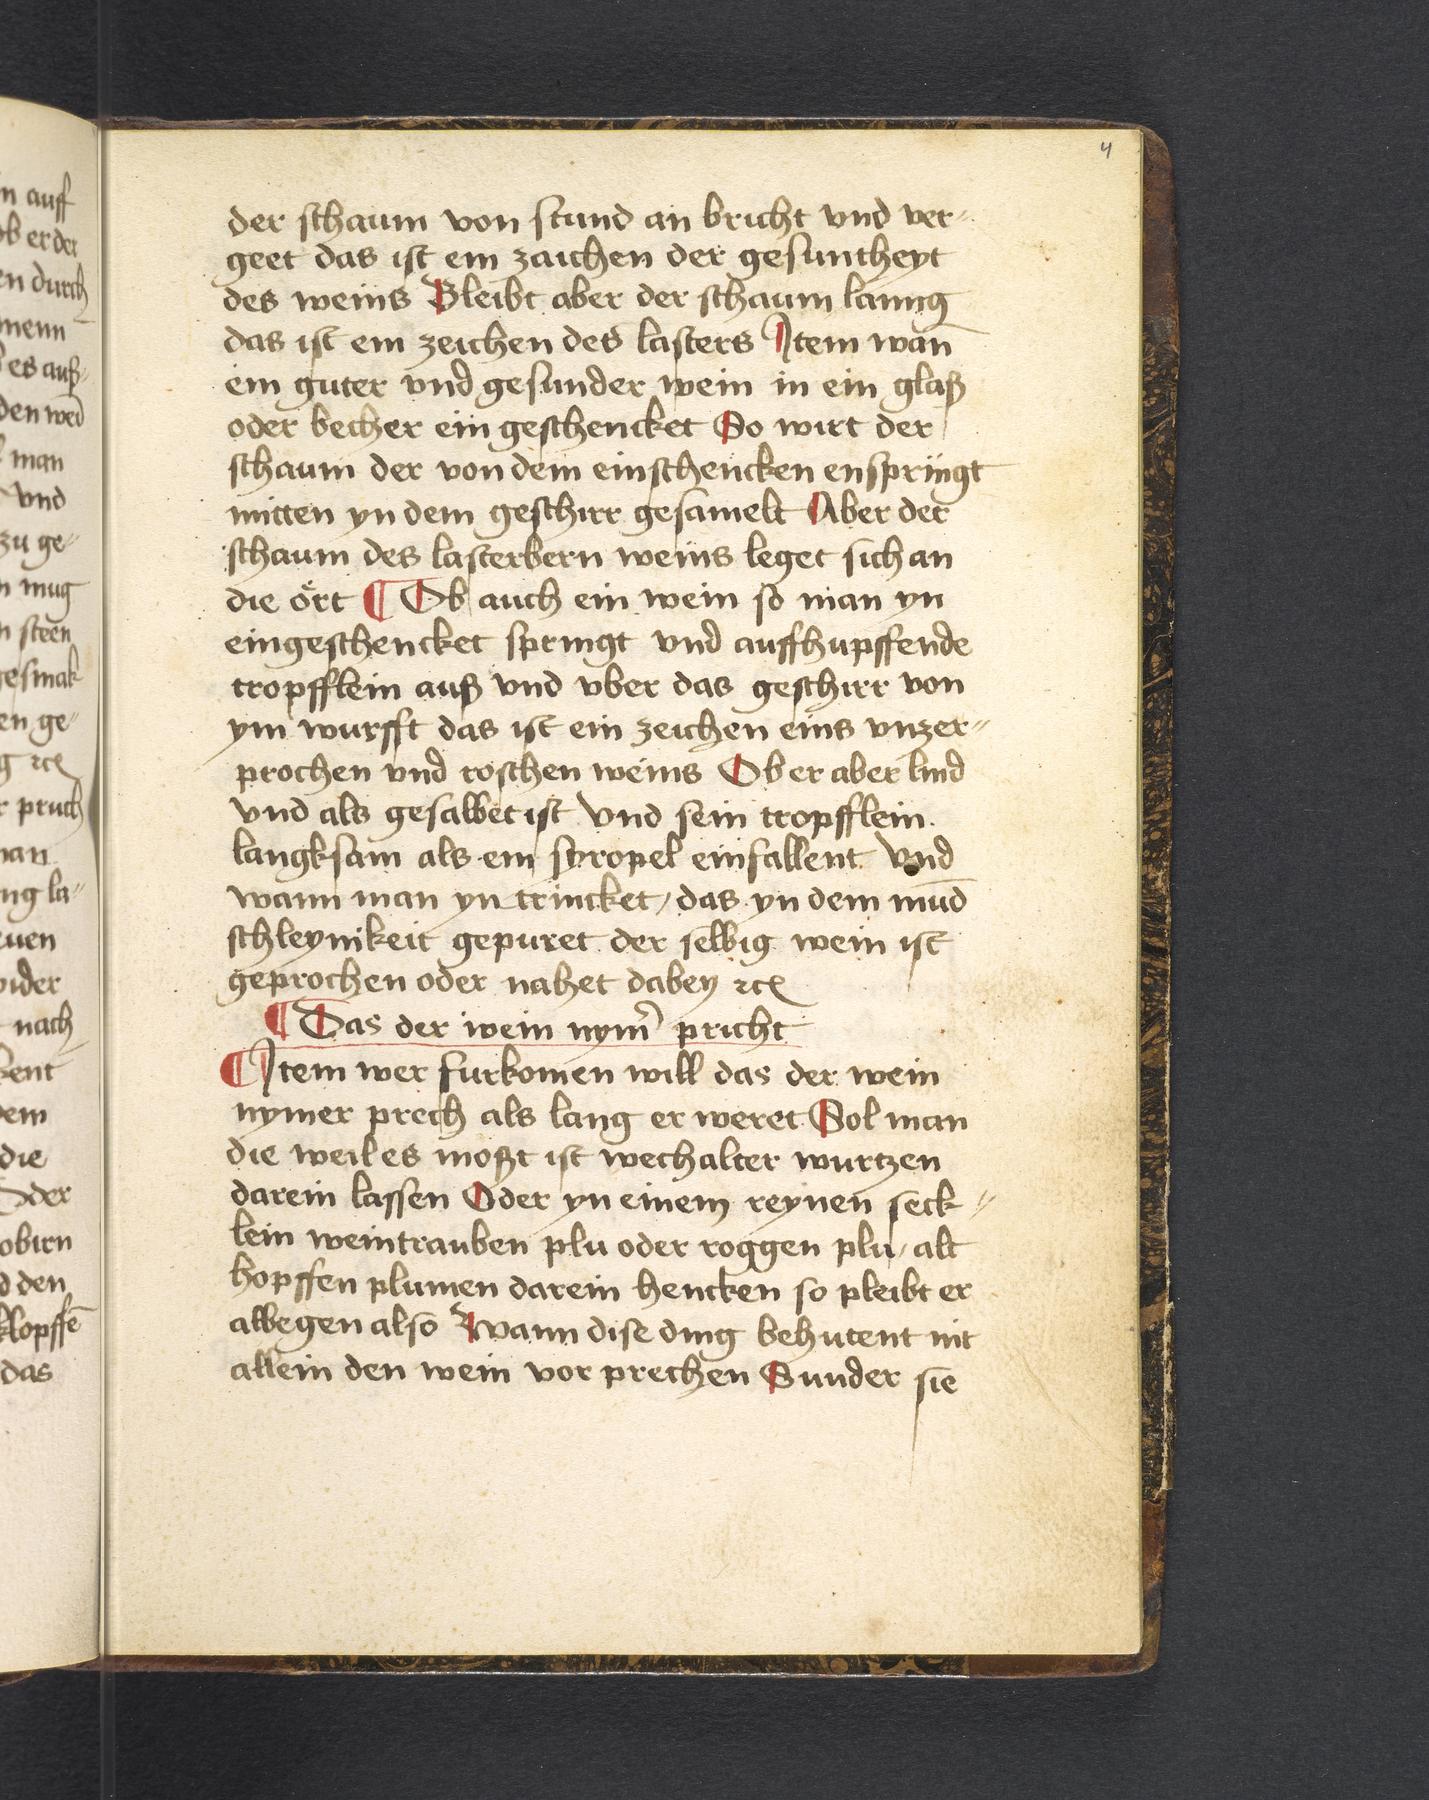 4
der schaum von stund an bricht vnd ver⸗
geet das ist ein zaichen der gesuntheyt
des weins Bleibt aber der schaum lanng
das ist ein zeichen des lasters Item wan̄
ein guter vnd gesunder wein in ein glaß
oder becher ein geschencket So wirt der
schaum der von dem einschencken enspringt
mitten yn dem geschirr gesamelt Aber der
schaum des lasterbern weins leget sich an
die ört ¶ Ob auch ein wein so man yn
eingeschencket springt vnd auffhupffende
tropfflein auß vnd vber das geschirr von
ym wurfft das ist ein zeichen eins vnzer⸗
prochen vnd roschen weins Ob er aber lind
vnd als gesalbet ist vnd sein tropfflein
langksam als ein syropel einfallent vnd
wann man yn trincket / das yn dem mūd
schleynikeit gepuret der selbig wein ist
geprochen oder nahet dabey ꝛcꝭ
¶ Das der wein nym̄ pricht
¶ Item wer furkomen will das der wein
nymer prech als lang er weret Sol man
die weil es moßt ist wechalter wurtzen
darein lassen Oder yn einem reynen seck⸗
lein weintrauben plu oder roggen plu / alt
hopffen plumen darein hencken so pleibt er
albegen also Wann dise ding behutent nit
allein den wein vor prechen Sunder sie